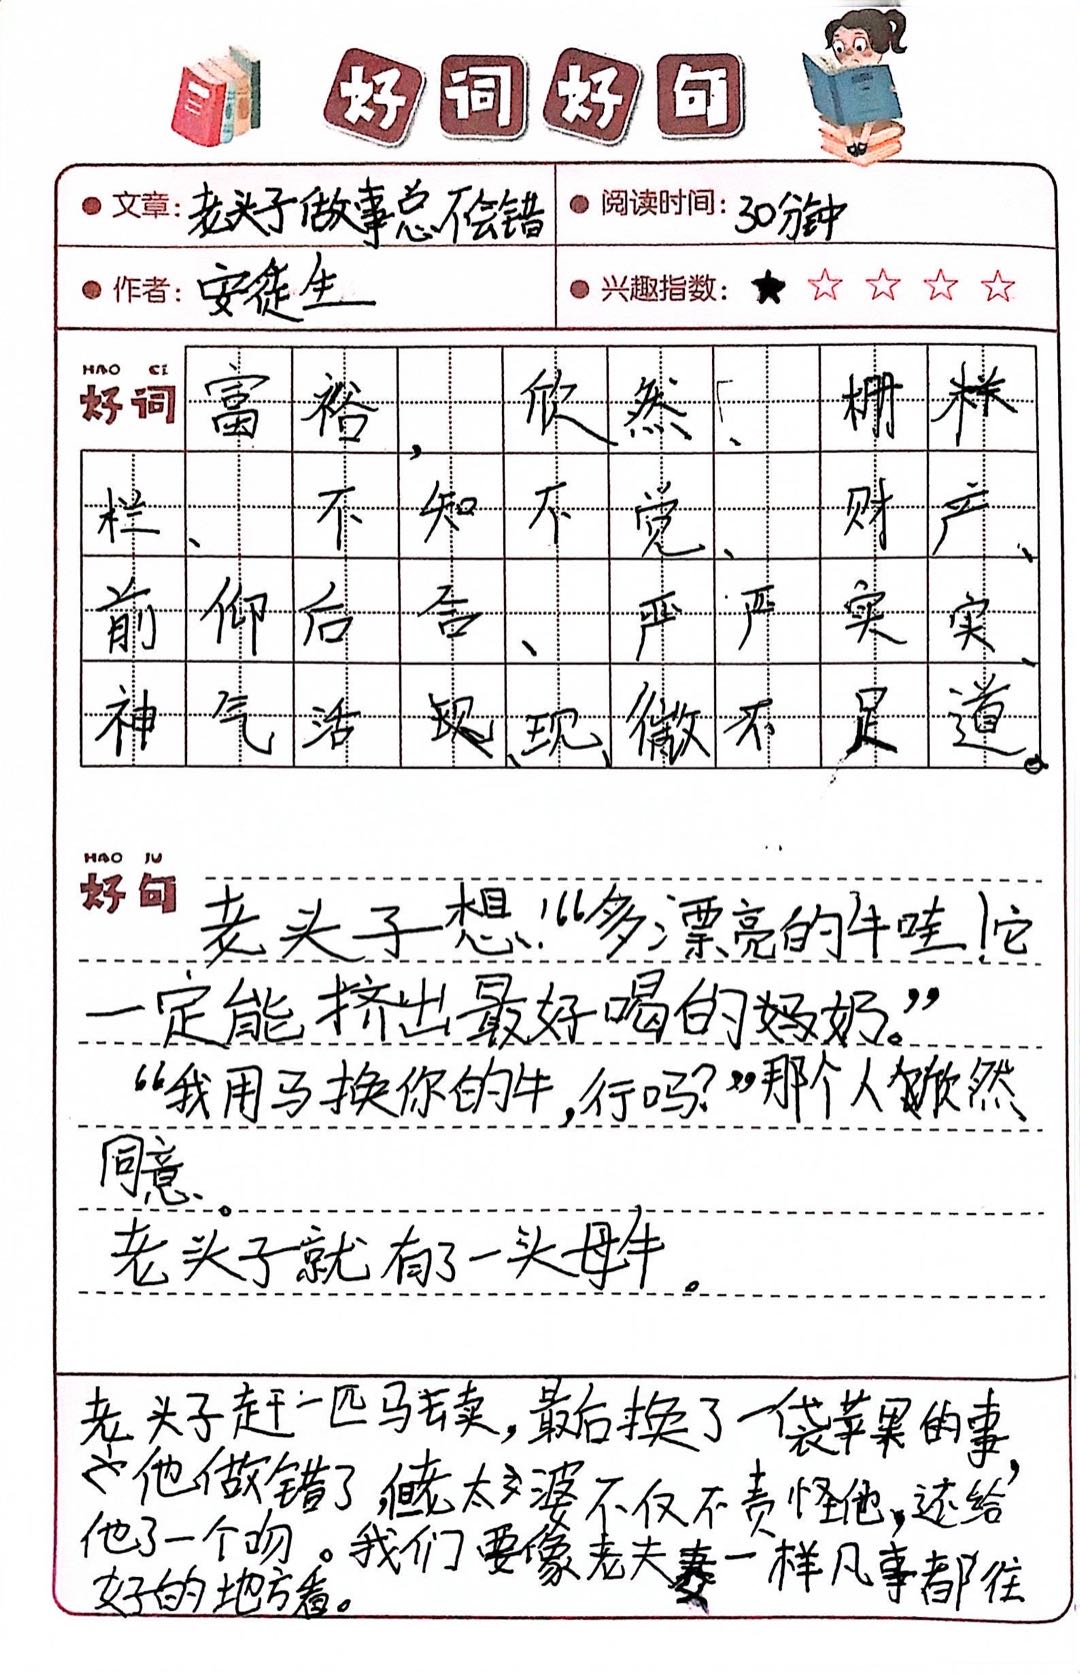 好词好句
文章：老头子做事总不会错
阅读时间：30分钟
作者：安徒生
兴趣指数：★☆☆☆☆
HAO CI
好词 富裕，欣然、栅样
栏、不知不觉、财产、
前仰后合、严严实实、
神气活现、现、微不足道。
HAO JU
好句
老头子想：“多漂亮的牛哇！它
一定能挤出最好喝的奶奶。”
“我用马换你的牛，行吗？”那个人欣然
同意。
老头子就有了一头母牛。
老头子赶一匹马去卖，最后换了一袋苹果的事，
他做错了，但老太婆不仅不责怪他，还给
他了一个吻。我们要像老夫妻一样凡事都往
好的地方看。